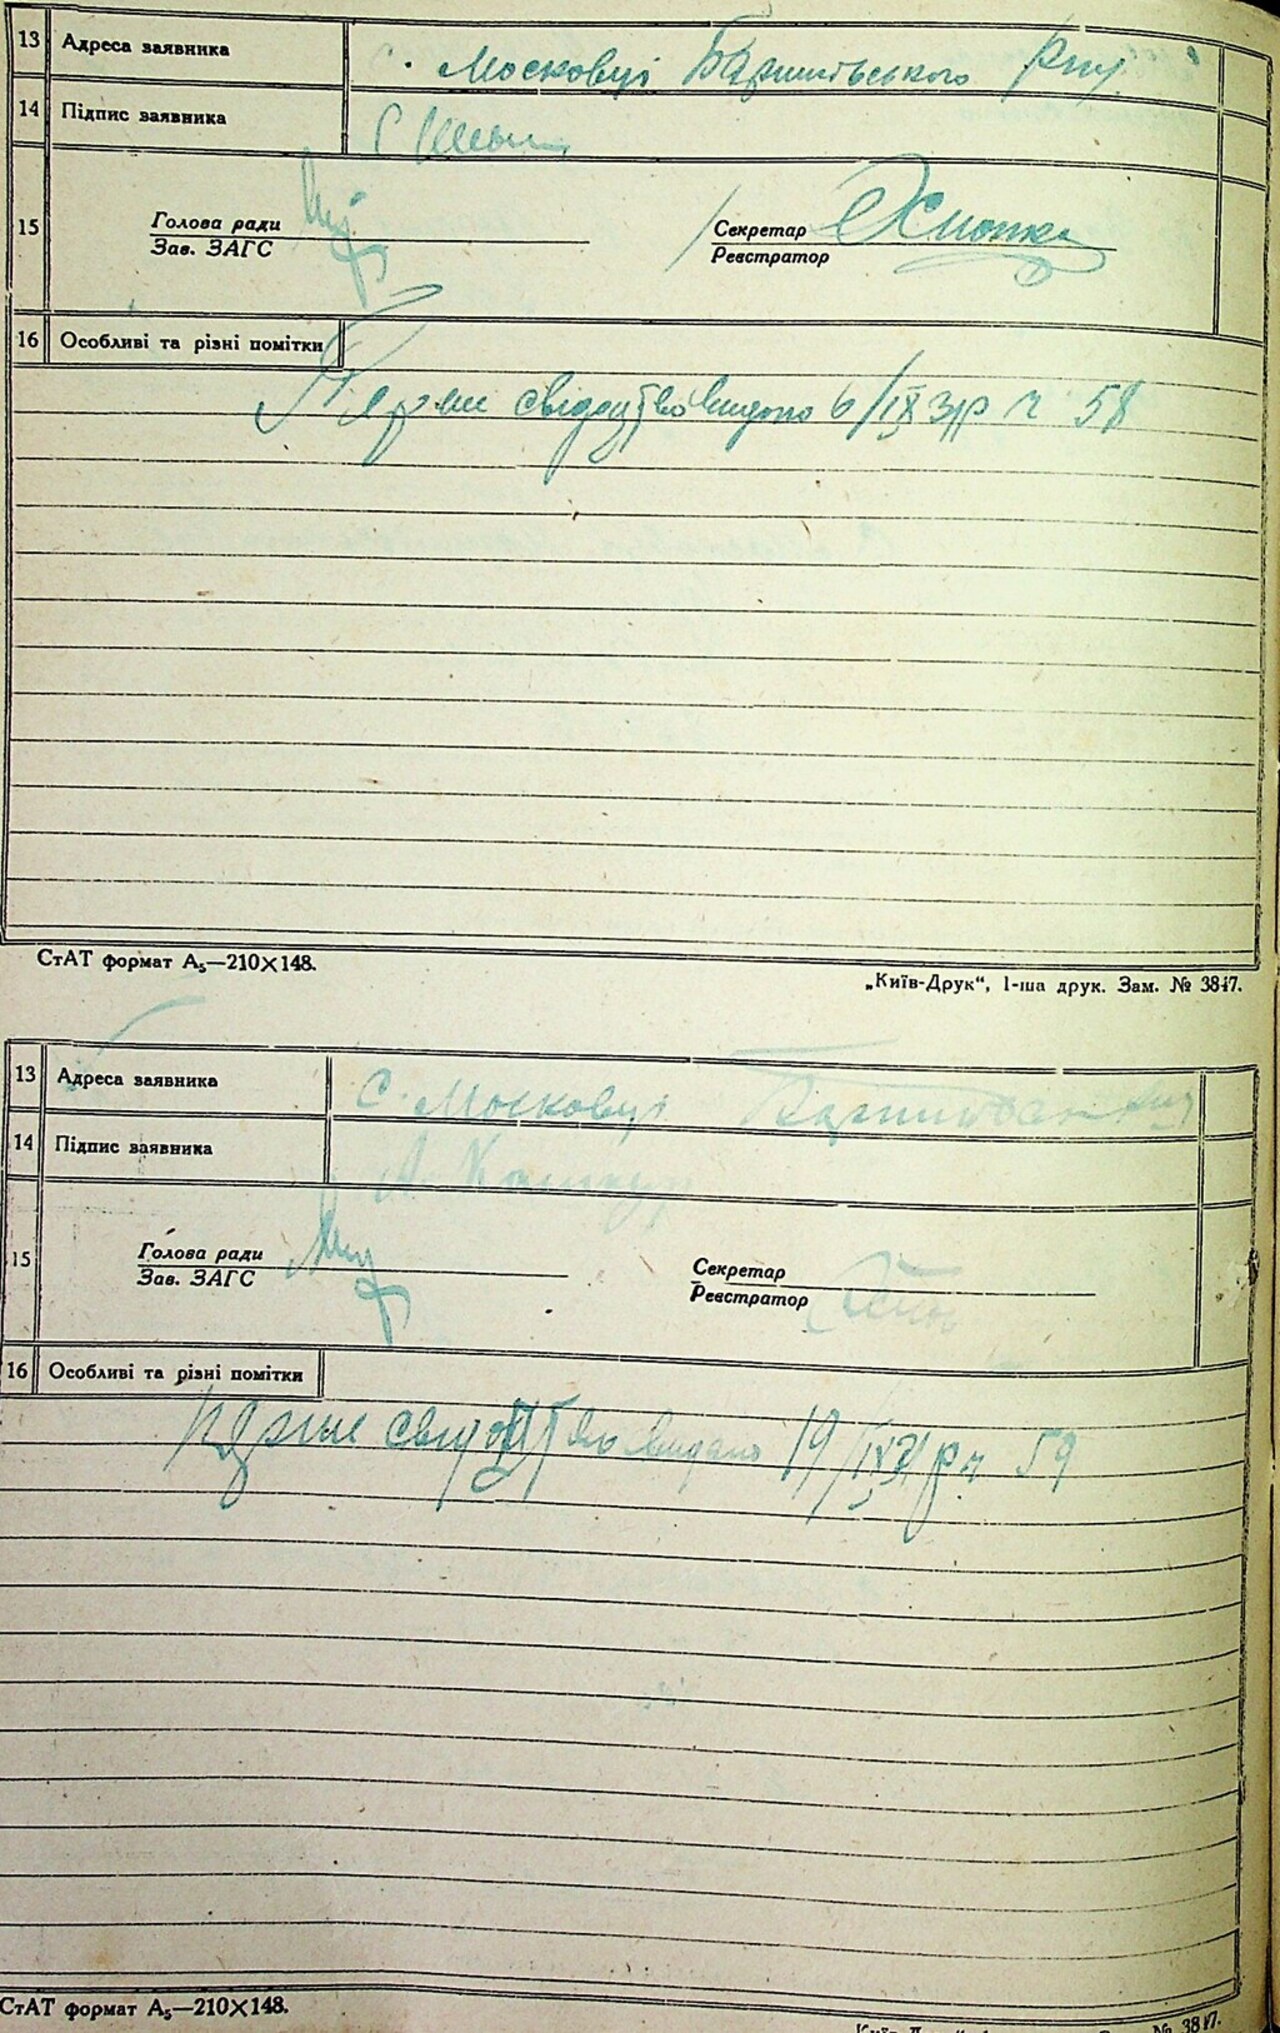 13 Адреса заявника с. Московці Баришівського р-ну
14 Підпис заявника
15 Голова ради
Зав. ЗАГС
Секретар
Реєстратор
16 Особливі та різні помітки
Перше свідоцтво видано 6/IX 31р ч 58
СтАТ формат А₅—210×148.
„Київ-Друк“, 1-ша друк. Зам. № 3847.
13 Адреса заявника С. Московці
14 Підпис заявника
15 Голова ради
Зав. ЗАГС
Секретар
Реєстратор
16 Особливі та різні помітки
Перше свідоцтво видано 19/IX 31 р ч 59
СтАТ формат А₅—210×148.
№ 3847.